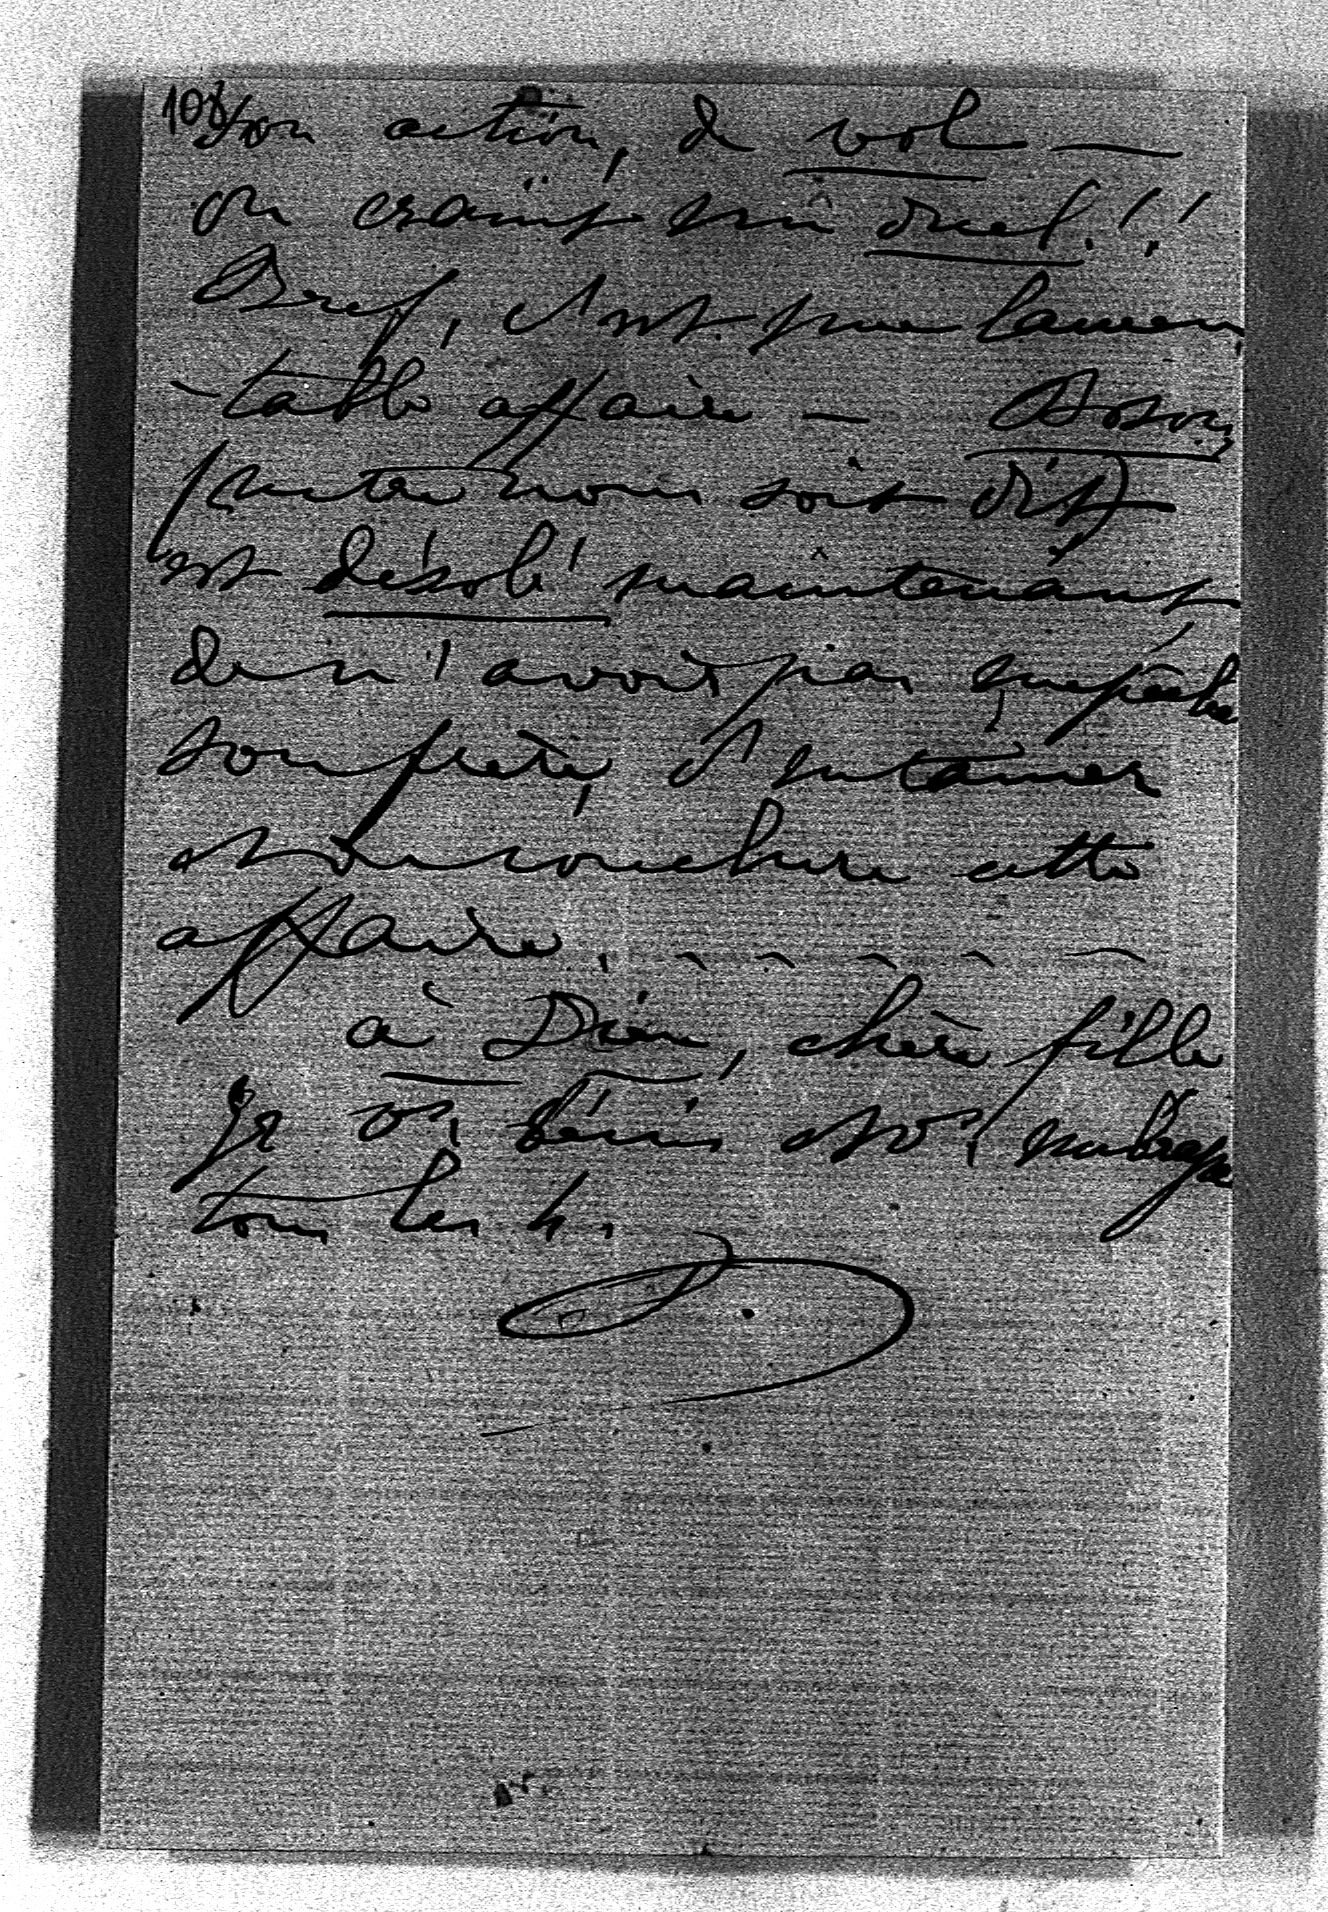 108
son action, de vol —
on craint un duel!!
Bref, c'est une lamen
-table affaire — Boson
(entre nous soit dit)
est désolé maintenant
de n'avoir pas empêché
son frère, d'entamer
et de conclure cette
affaire. - - - - -
à Dieu, chère fille
Je vs bénis et vs embrasse
tous les 4.